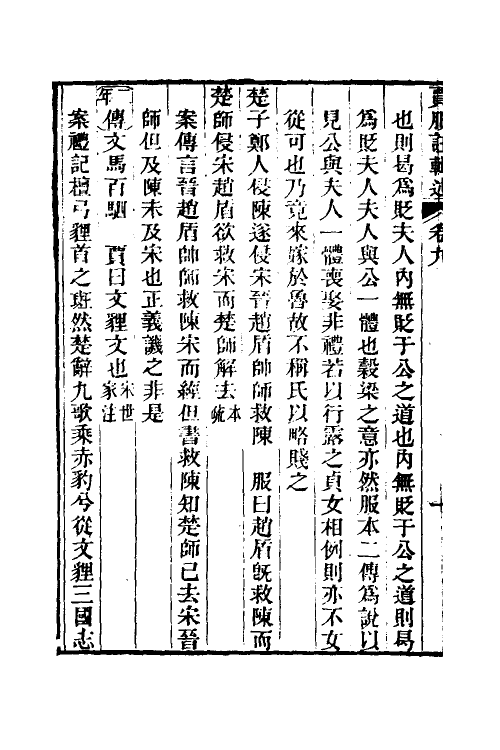 賈服註輯述 卷九
也則曷爲貶夫人內無貶于公之道也內無貶于公之道則曷
爲貶夫人夫人與公一體也穀梁之意亦然服本二傳爲說以
見公與夫人一體喪娶非禮若以行露之貞女相例則亦不女
從可也乃竟來嫁於魯故不稱氏以略賤之
楚子鄭人侵陳遂侵宋晉趙盾帥師救陳 服曰趙盾旣救陳而
楚師侵宋趙盾欲救宋而楚師解去本疏
案傳言晉趙盾帥師救陳宋而經但書救陳知楚師已去宋晉
師但及陳未及宋也正義譏之非是
年傳文馬百駟 賈曰文貍文也宋世家注
案禮記檀弓貍首之班然楚辭九歌乘赤豹兮從文貍三國志